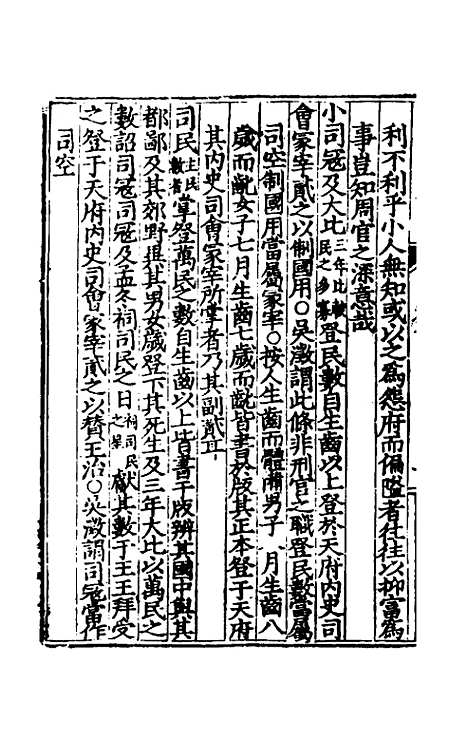 利不利乎小人無知或以之爲怨府而偏隘者往往以抑富爲
事豈知周官之深意哉
小司寇及大比三年比數民之多寡登民數自生齒以上登於天府內史司
會冢宰貳之以制國用○吳澂謂此條非刑官之職登民數當屬
司空制國用當屬冢宰○按人生齒而體備男子 月生齒八
歲而齔女子七月生齒七歲而齔皆書於版其正本登于天府
其內史司會冢宰所掌者乃其副貳耳
司民主民數者掌登萬民之數自生齒以上皆書于版辨其國中與其
都鄙及其郊野異其男女歲登下其死生及三年大比以萬民之
數詔司寇司寇及孟冬祠司民之日祠司民之星獻其數于王王拜受
之登于天府內史司會冢宰貳之以贊王治○吳澂謂司寇當作
司空